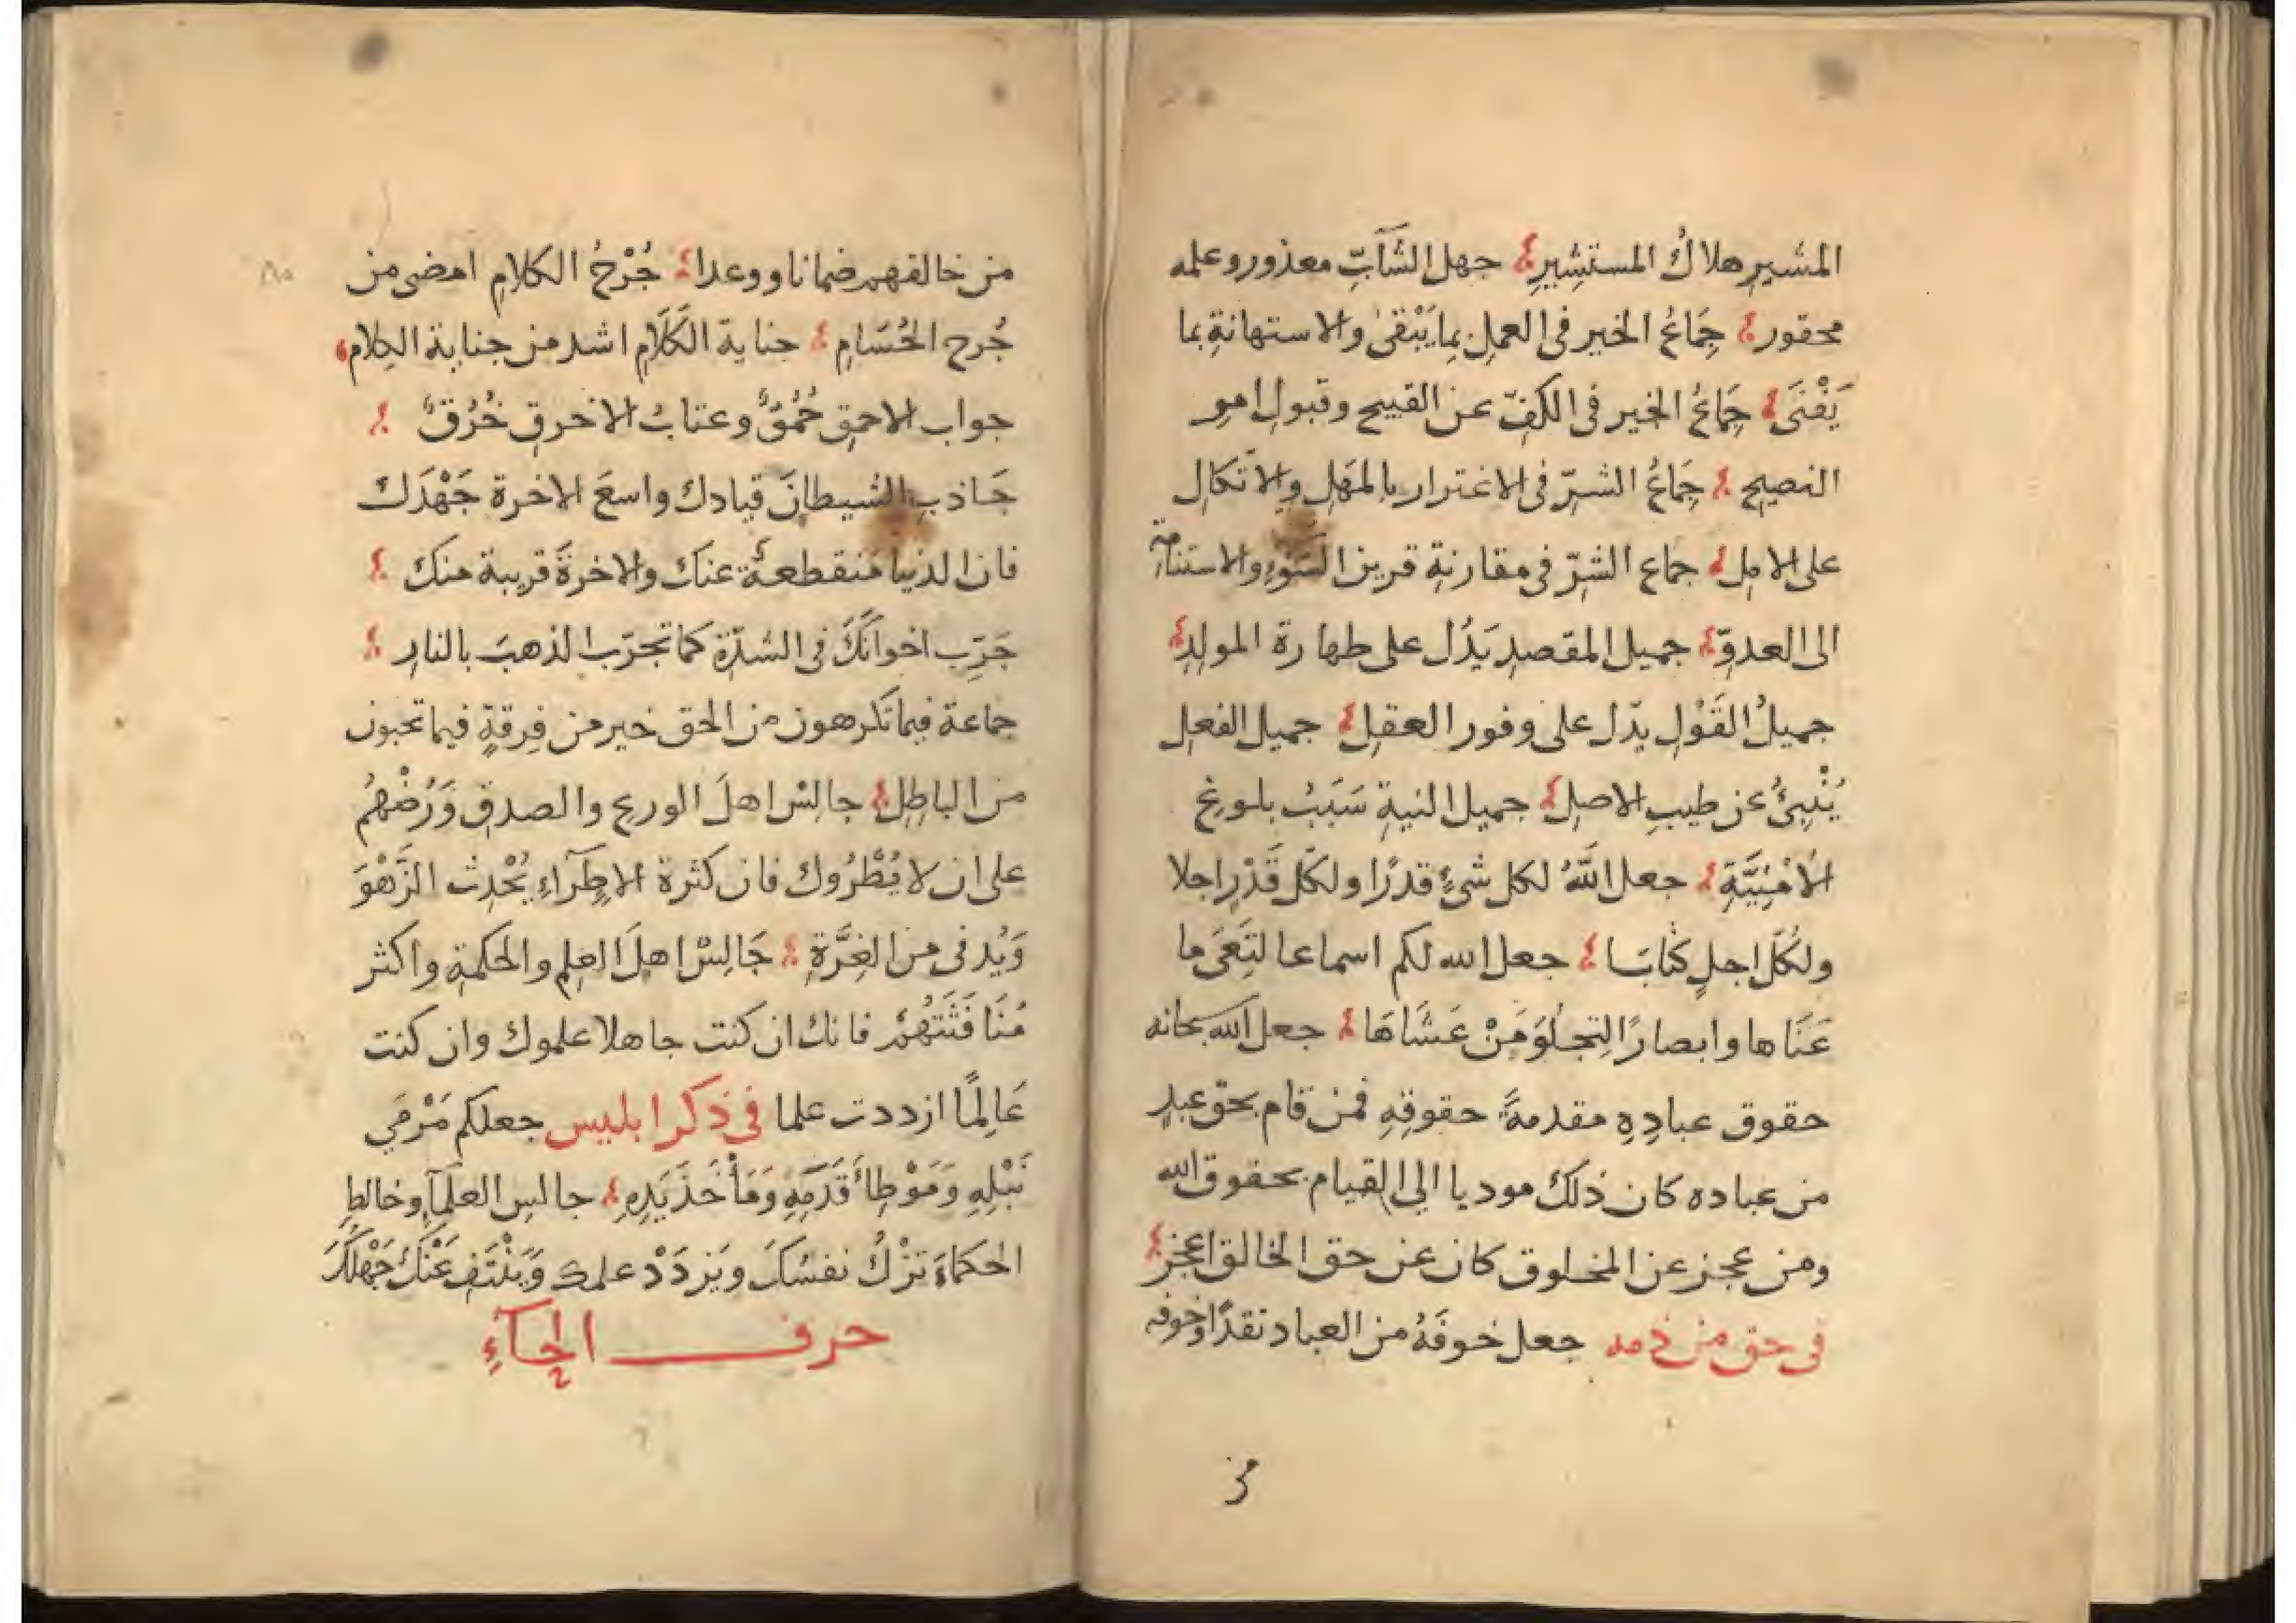 المشيرِ هلاكُ المستشِيرِ ؛ جهل الشّآبِّ معذور وعلمه
محقور ؛ جِمَاعُ الخير فى العملِ بِما يَبْقىٰ والاستهانةِ بما
يَفْنَى ؛ جِمَاعُ الخير فى الكفِّ عن القبيح وقبولِ امرِ
النصِيحِ ؛ جِمَاعُ الشرِّ فى الاغترار بالمَهَلِ والاتّكالِ
على الاملِ ؛ جماع الشرِّ فى مقارنةِ قرين السَّوْءِ والاستنامةِ
الى العدوّ ؛ جميل المقصدِ يَدُل على طهارة المولِدِ ؛
جميلُ القَوْلِ يدّل على وفور العقلِ ؛ جميل الفعلِ
يُنْبِئُ عن طيبِ الاصلِ ؛ جميل النيةِ سَبَبُ بلوغِ
الاُمْنِيَّةِ ؛ جعل اللّهُ لكل شئٍ قدرًا ولكلّ قَدْرٍ اجلا
ولكلّ اجلٍ كتابًا ؛ جعل الله لكم اسماعا لتَعَى ما
عَنَاها وابصارًا لتِجلُوَ مَنْ عَشَاهَا ؛ جعل الله سبحانه
حقوق عبادِهِ مقدمةً حقوقِهِ فمن قام بحقّ عبدٍ
من عباده كان ذلك موديا الى القيام بحقوق الله
ومن عجز عن المخلوق كان عن حق الخالق اعجز ؛
فى حق من ذمه جعل خوفَهُ من العباد نقدًا وخوفه
من
من خالقهم ضمانا ووعدا ؛ جُرْحُ الكلامِ امضى من
جُرح الحُسَامِ ؛ جناية الكَلَامِ اشد من جناية الكِلام
جواب الاحمقِ حُمُقٌ وعتابُ الاخرقِ خُرُقٌ ؛
جَاذبِ الشيطانَ قيادك واسعَ الاخرة جَهْدَكَ
فان الدنيا منقطعةٌ عنك والاخرةَ قريبة منك ؛
جَرِّب اخوانَكَ فى الشدّةِ كما تجرّب الذهبَ بالنارِ ؛
جماعة فيما تكرهون من الحق خير من فِرقةٍ فيما تحبون
من الباطِلِ ؛ جالِسْ اهلَ الورعِ والصدقِ وَرُضْهُمْ
على ان لا يُطْرُوك فان كثرة الاِطِرآءِ يُحْدِث الزَّهْوَ
وَيُدنى من الغِرَّةِ ؛ جَالِسْ اهلَ العِلمِ والحكمةِ واكثر
مُنَافَثَتَهُمْ فانك ان كنت جاهلا علموك وان كنت
عَالِمًا ازددت علما فى ذكر ابليس جعلكم مَرْمَي
نَبْلِهِ وَمَوْطِأَ قَدَمِهِ وَمَأْخَذَ يَدِهِ ؛ جالسِ العلَمآءَ وخالطِ
الحكماءَ تزْكُ نفسُكَ ويَزدَدْ علمك وَيَنْتَفِ عَنْكَ جَهْلُكَ
حرف الحآءِ